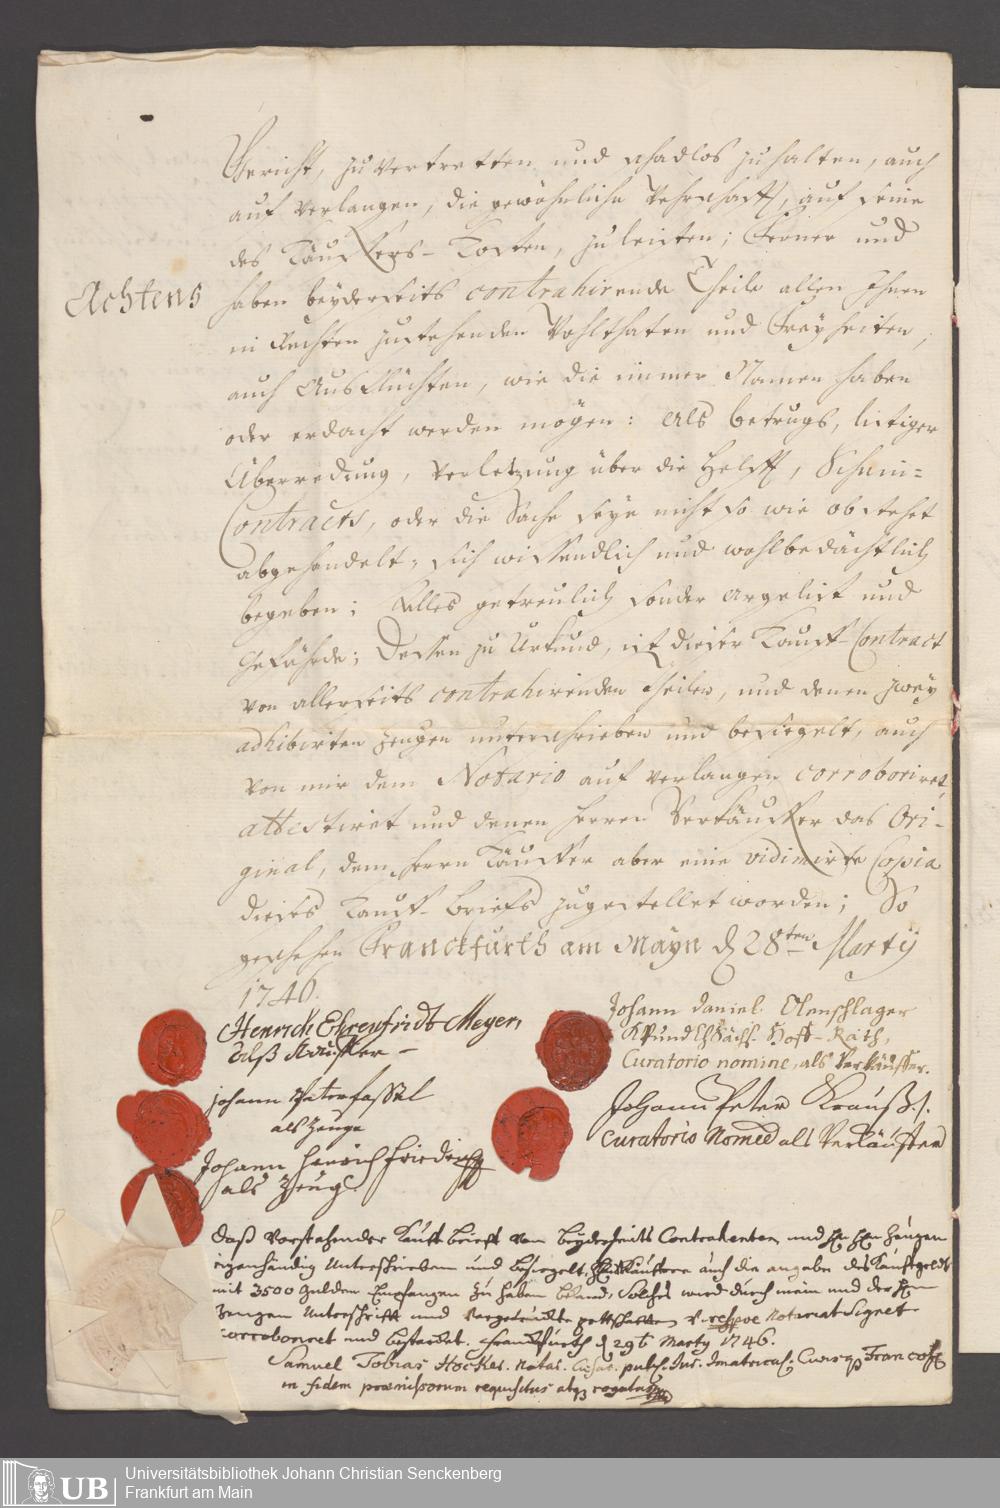 Gericht, zu vertretten und schadlos zu halten, auch
auf verlangen, die gewöhnliche Wehrschafft, auf seine
des Käuffers-Kosten, zu leisten; Ferner und
Achtens
haben beyderseits contrahirende Theile allen Ihnen
in Rechten zustehenden Wohlthaten und Freyheiten,
auch Ausflüchten, wie die immer Namen haben
oder erdacht werden mögen: Als betrugs, listiger
Überredung, Verletzung über die Helfft, Schein-
Contracts, oder die Sache seye nicht so wie obstehet
abgehandelt, sich wissendlich und wohlbedächtlich
begeben; Alles getreulich sonder Argelist und
Gefährde; Dessen zu Urkund, ist dieser Kauff-Contract
von allerseits contrahirenden theilen, und denen zwey
adhibirten zeugen unterschrieben und besiegelt, auch
von mir dem Notario auf verlangen corroboriret,
attestiret und denen Herren Verkäuffer das Ori-
ginal, dem Herrn Käuffer aber eine vidimirte Copia
dieses Kauff-Briefs zugestellet worden; So
geschehen Franckfurth am Mayn d 28ten Martij
1746.
Henrich Ehrenfridt Meyer,
Alß Käuffer
Johann Daniel Olenschlager
Hoff-Rath,
Curatorio nomine, als Verkäuffer.
johann
als Zeuge
Johann Peter Krauß
Curatorio Nomine als Verkäuffer
Johann Henrich Friderich
als Zeug.
Daß Vorstehender Kauff brieff von beyderseits Contrahenten und Zeugen
eigenhändig Unterschrieben und besiegelt, Verkäuffere auch die angabe des Kauffgelds
mit 3500 Gulden Empfangen zu haben bekand, Solches wird durch mein und der
Zeugen Unterschrifft und Vorgedruckte pettschafften respve Notariat Signet
corroboriret und bestärcket. Franckfurth d 29t Marty 1746.
Samuel Tobias Hocker. Notar. Caesar. publ. Jur. Imatricul. Francof.
in fidem praemissorum requisitus atq rogatus
UB
Universitätsbibliothek Johann Christian Senckenberg
Frankfurt am Main